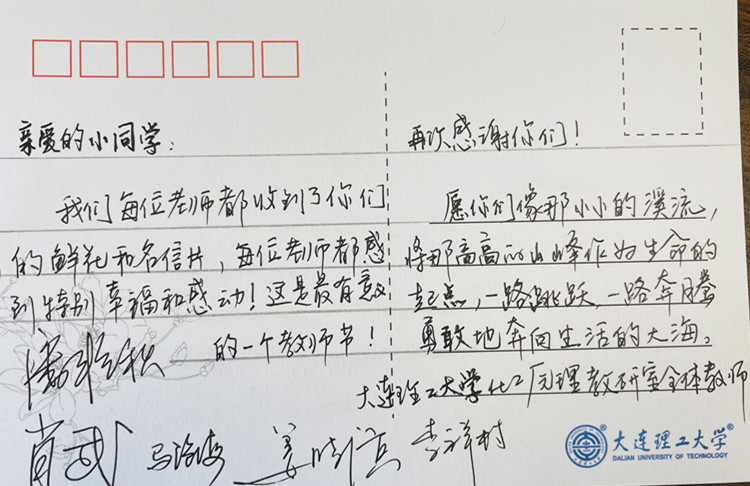 亲爱的小同学：
我们每位老师都收到了你们
的鲜花和名信片，每位老师都感
到特别幸福和感动！这是最有意义
的一个教师节！
再次感谢你们！
愿你们像那小小的溪流，
将那高高的山峰作为生命的
起点，一路跳跃，一路奔腾
勇敢地奔向生活的大海。
大连理工大学化工原理教研室全体教师
肖武
马沧海
姜晓滨
李祥村
大连理工大学
DALIAN UNIVERSITY OF TECHNOLOGY